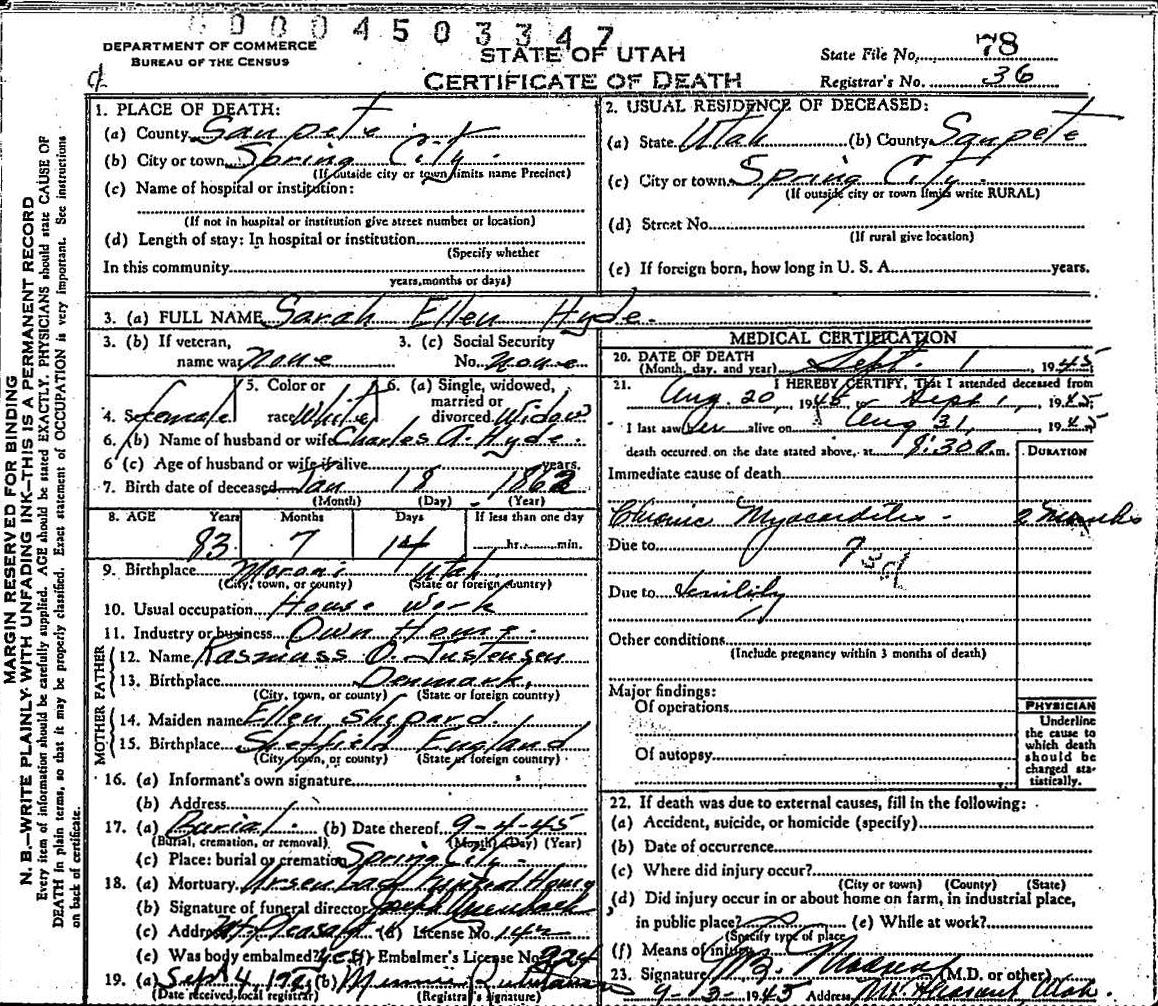 0000450 3347
DEPARTMENT OF COMMERCE
BUREAU OF THE CENSUS
STATE OF UTAH
CERTIFICATE OF DEATH
State File No. 78
Registrar's No. 36
MARGIN RESERVED FOR BINDING
N. B.—WRITE PLAINLY WITH UNFADING INK—THIS IS A PERMANENT RECORD
Every item of information should be carefully supplied. AGE should be stated EXACTLY. PHYSICIANS should state CAUSE OF
DEATH in plain terms, so that it may be properly classified. Exact statement of OCCUPATION is very important. See instructions
on back of certificate.
1. PLACE OF DEATH:
(a) County Sanpete
(b) City or town Spring City
(If outside city or town limits name Precinct)
(c) Name of hospital or institution:
(If not in hospital or institution give street number or location)
(d) Length of stay: In hospital or institution
(Specify whether
In this community
years, months or days)
2. USUAL RESIDENCE OF DECEASED:
(a) State Utah (b) County Sanpete
(c) City or town Spring City
(If outside city or town limits write RURAL)
(d) Street No.
(If rural give location)
(e) If foreign born, how long in U. S. A. years.
3. (a) FULL NAME Sarah Ellen Hyde
3. (b) If veteran, 3. (c) Social Security
name war none No. none
5. Color or 6. (a) Single, widowed,
married or
4. Sex female race White divorced Widow
6. (b) Name of husband or wife Charles A. Hyde
6 (c) Age of husband or wife if alive years.
7. Birth date of deceased Jan 18 1862
(Month) (Day) (Year)
8. AGE Years Months Days If less than one day
83 7 14 hr. min.
9. Birthplace Moroni Utah
(City, town, or county) (State or foreign country)
10. Usual occupation House Work
11. Industry or business Own Home
FATHER
12. Name Rasmuss O. Justensen
13. Birthplace Denmark
(City, town, or county) (State or foreign country)
MOTHER
14. Maiden name Ellen Shepard
15. Birthplace Sheffield England
(City, town, or county) (State or foreign country)
16. (a) Informant's own signature
(b) Address
17. (a) Burial (b) Date thereof 9-4-45
(Burial, cremation, or removal) (Month) (Day) (Year)
(c) Place: burial or cremation Spring City
18. (a) Mortuary Ursenbach Funeral Home
(b) Signature of funeral director Joseph Ursenbach
(c) Address Mt Pleasant (d) License No. 142
(e) Was body embalmed? yes Embalmer's License No. 224
19. (a) Sept 4, (b)
(Date received local registrar) (Registrar's signature)
MEDICAL CERTIFICATION
20. DATE OF DEATH
(Month, day, and year) Sept. 1, 1945
21. I HEREBY CERTIFY, That I attended deceased from
Aug. 20, 1945 to Sept 1, 1945
I last saw her alive on Aug 31, 1945
death occurred on the date stated above, at 8:30 a.m. DURATION
Immediate cause of death
Chronic Myocarditis 2 Months
Due to
Due to Senility
Other conditions
(Include pregnancy within 3 months of death)
Major findings:
Of operations
Of autopsy
PHYSICIAN
Underline
the cause to
which death
should be
charged sta-
tistically.
22. If death was due to external causes, fill in the following:
(a) Accident, suicide, or homicide (specify)
(b) Date of occurrence
(c) Where did injury occur?
(City or town) (County) (State)
(d) Did injury occur in or about home on farm, in industrial place,
in public place? (e) While at work?
(Specify type of place
(f) Means of injury
23. Signature (M.D. or other)
9-3-1945 Address Mt Pleasant Utah